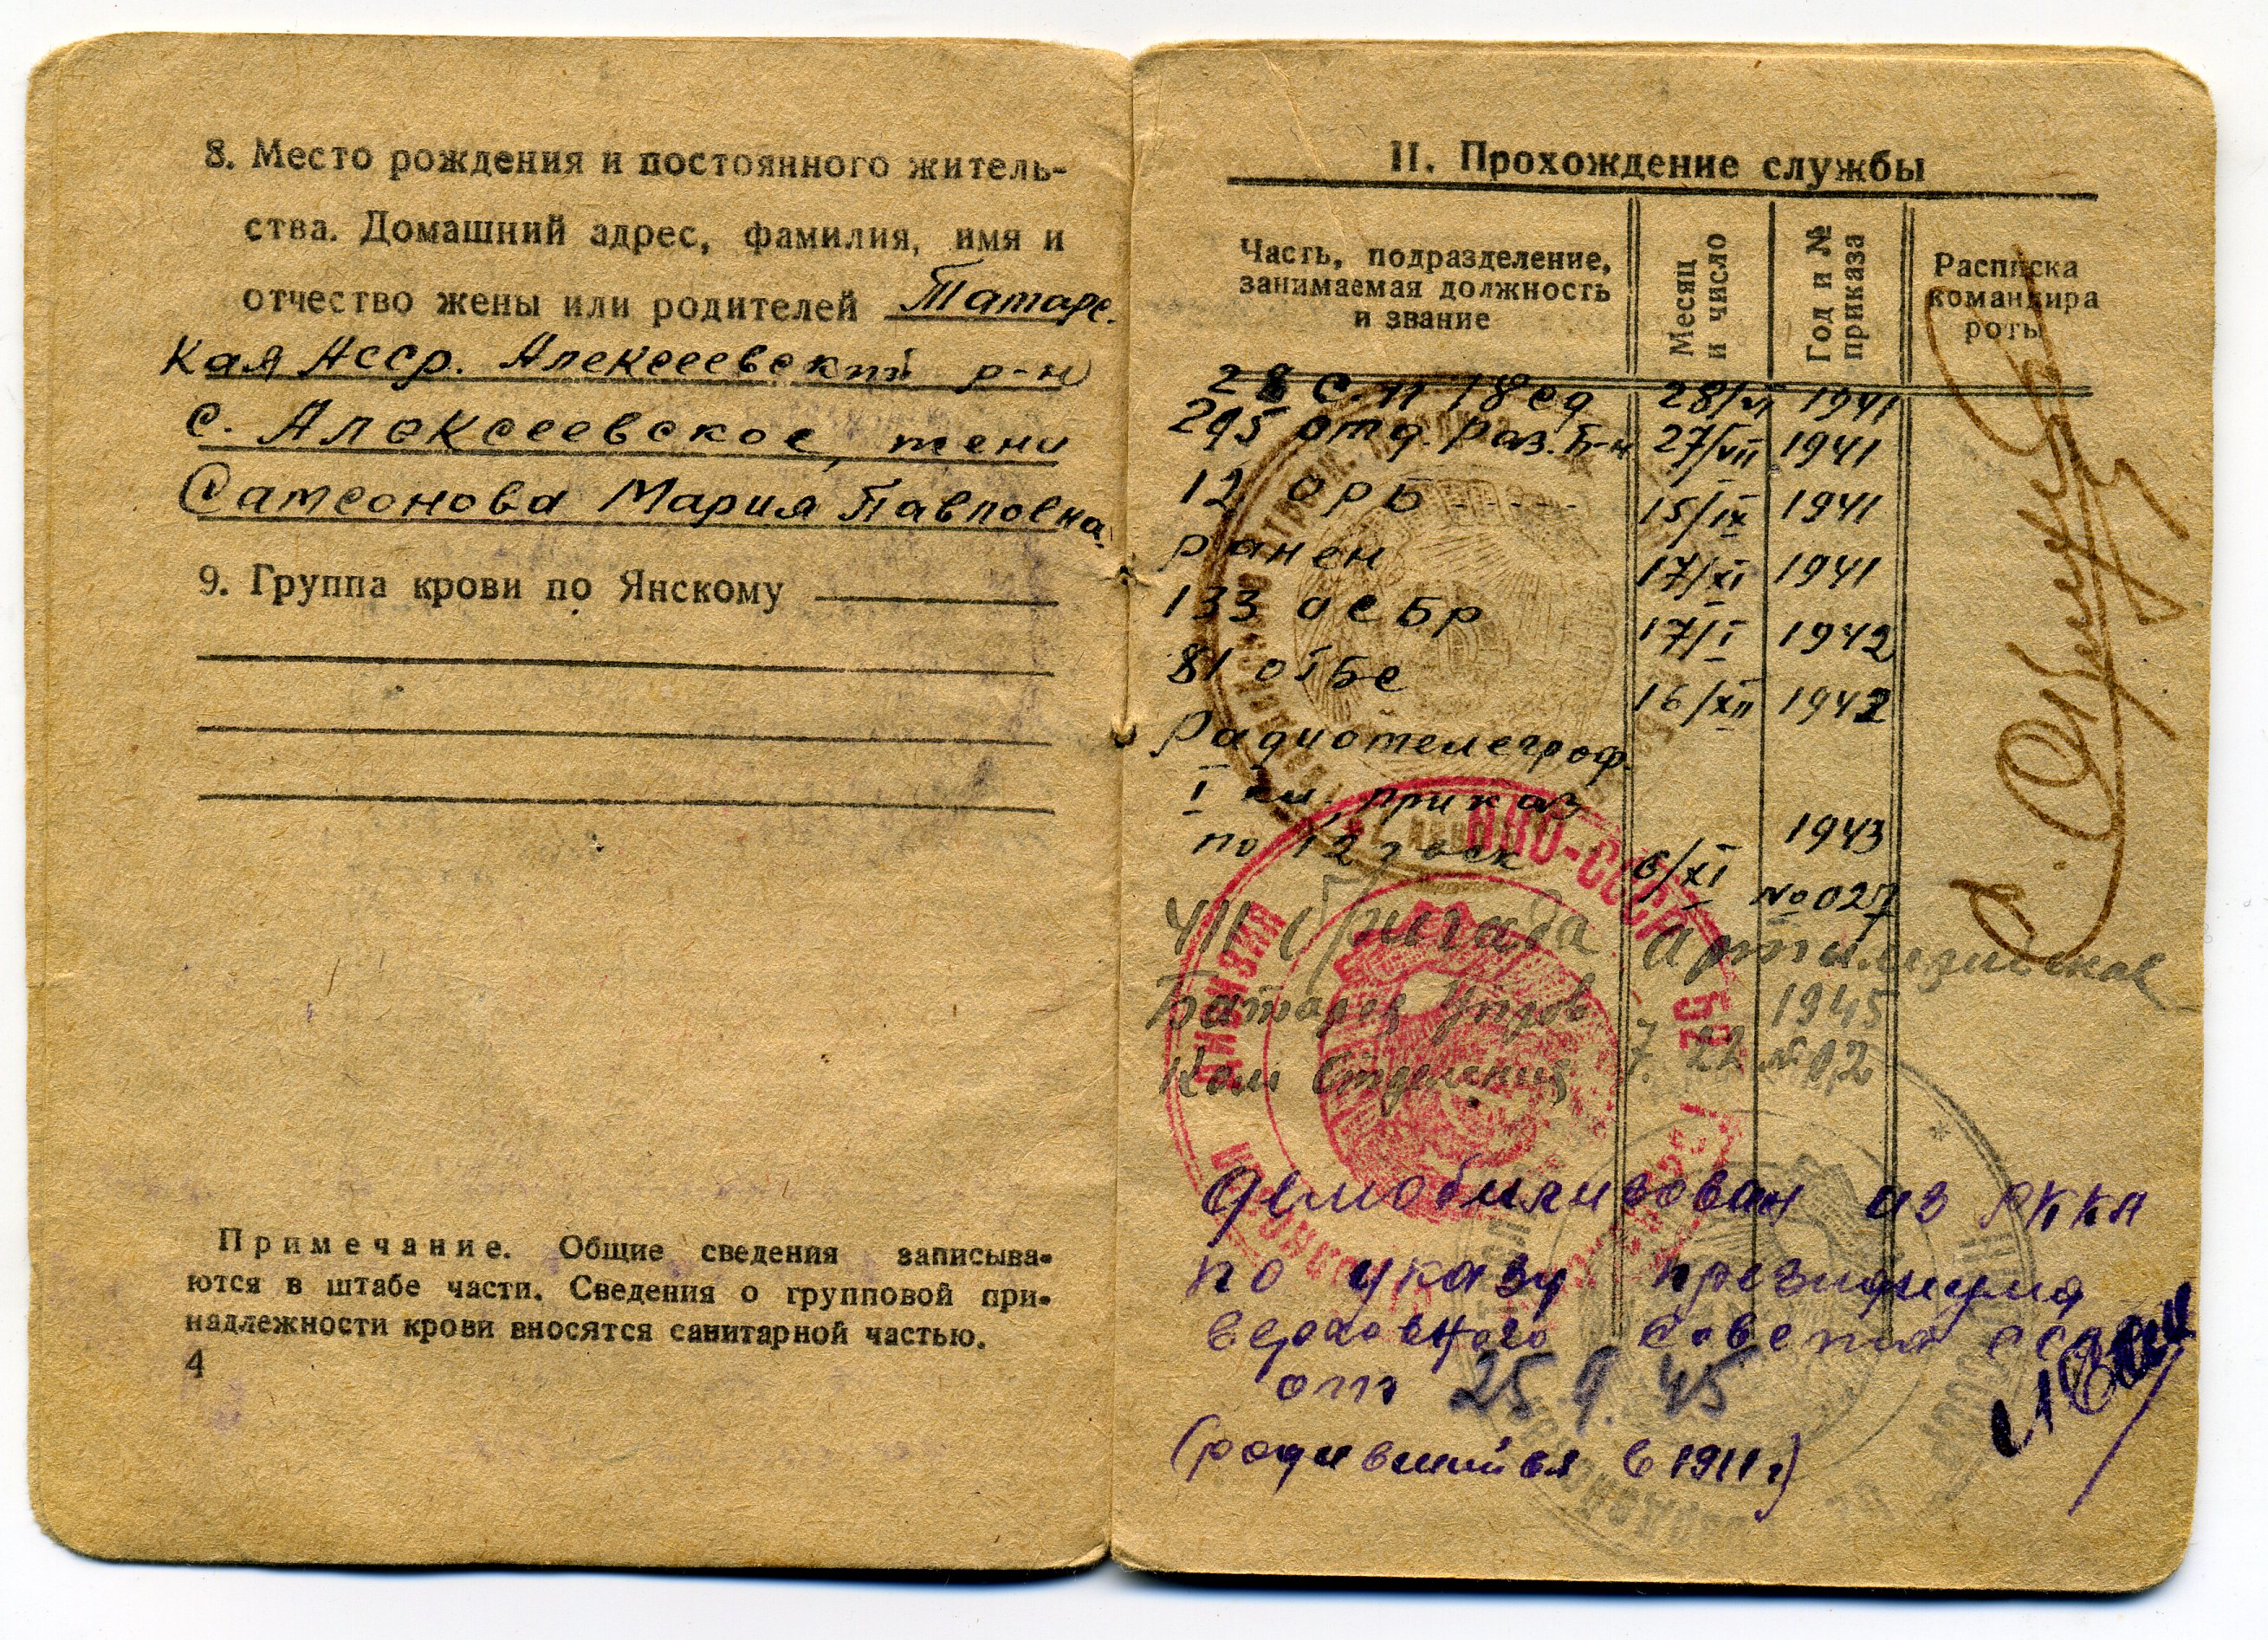 8. Место рождения и постоянного житель-
ства. Домашний адрес, фамилия, имя и
отчество жены или родителей Татарс.
кая Асср. Алексеевский р-н
с. Алексеевское, жени
Самсонова Мария Павловна.
9. Группа крови по Янскому
Примечание. Общие сведения записыва-
ются в штабе части. Сведения о групповой при-
надлежности крови вносятся санитарной частью.
4
II. Прохождение службы
Часть, подразделение,
занимаемая должность
и звание
Месяц
и число
Год и №
приказа
Расписка
командира
роты
28 с.п 18 сд 28/VI 1941
295 отд. раз. б-н 27/VII 1941
12 орб 15/IX 1941
ранен 17/XI 1941
133 осбр 17/I 1942
81 отбс 16/XII 1942
Радиотелеграф.
I кл. приказ 1943
по 12 6/XI №027
411 бригада артилерийская
Батарея Упров 1945
Ком Отделения 7. 22 № 02
НВО-СССР
ДИВИЗИЯ
Демобилизован из РККА
по указу президиума
верховного совета ссср
от 25.9.45
(родившийся в 1911 г)